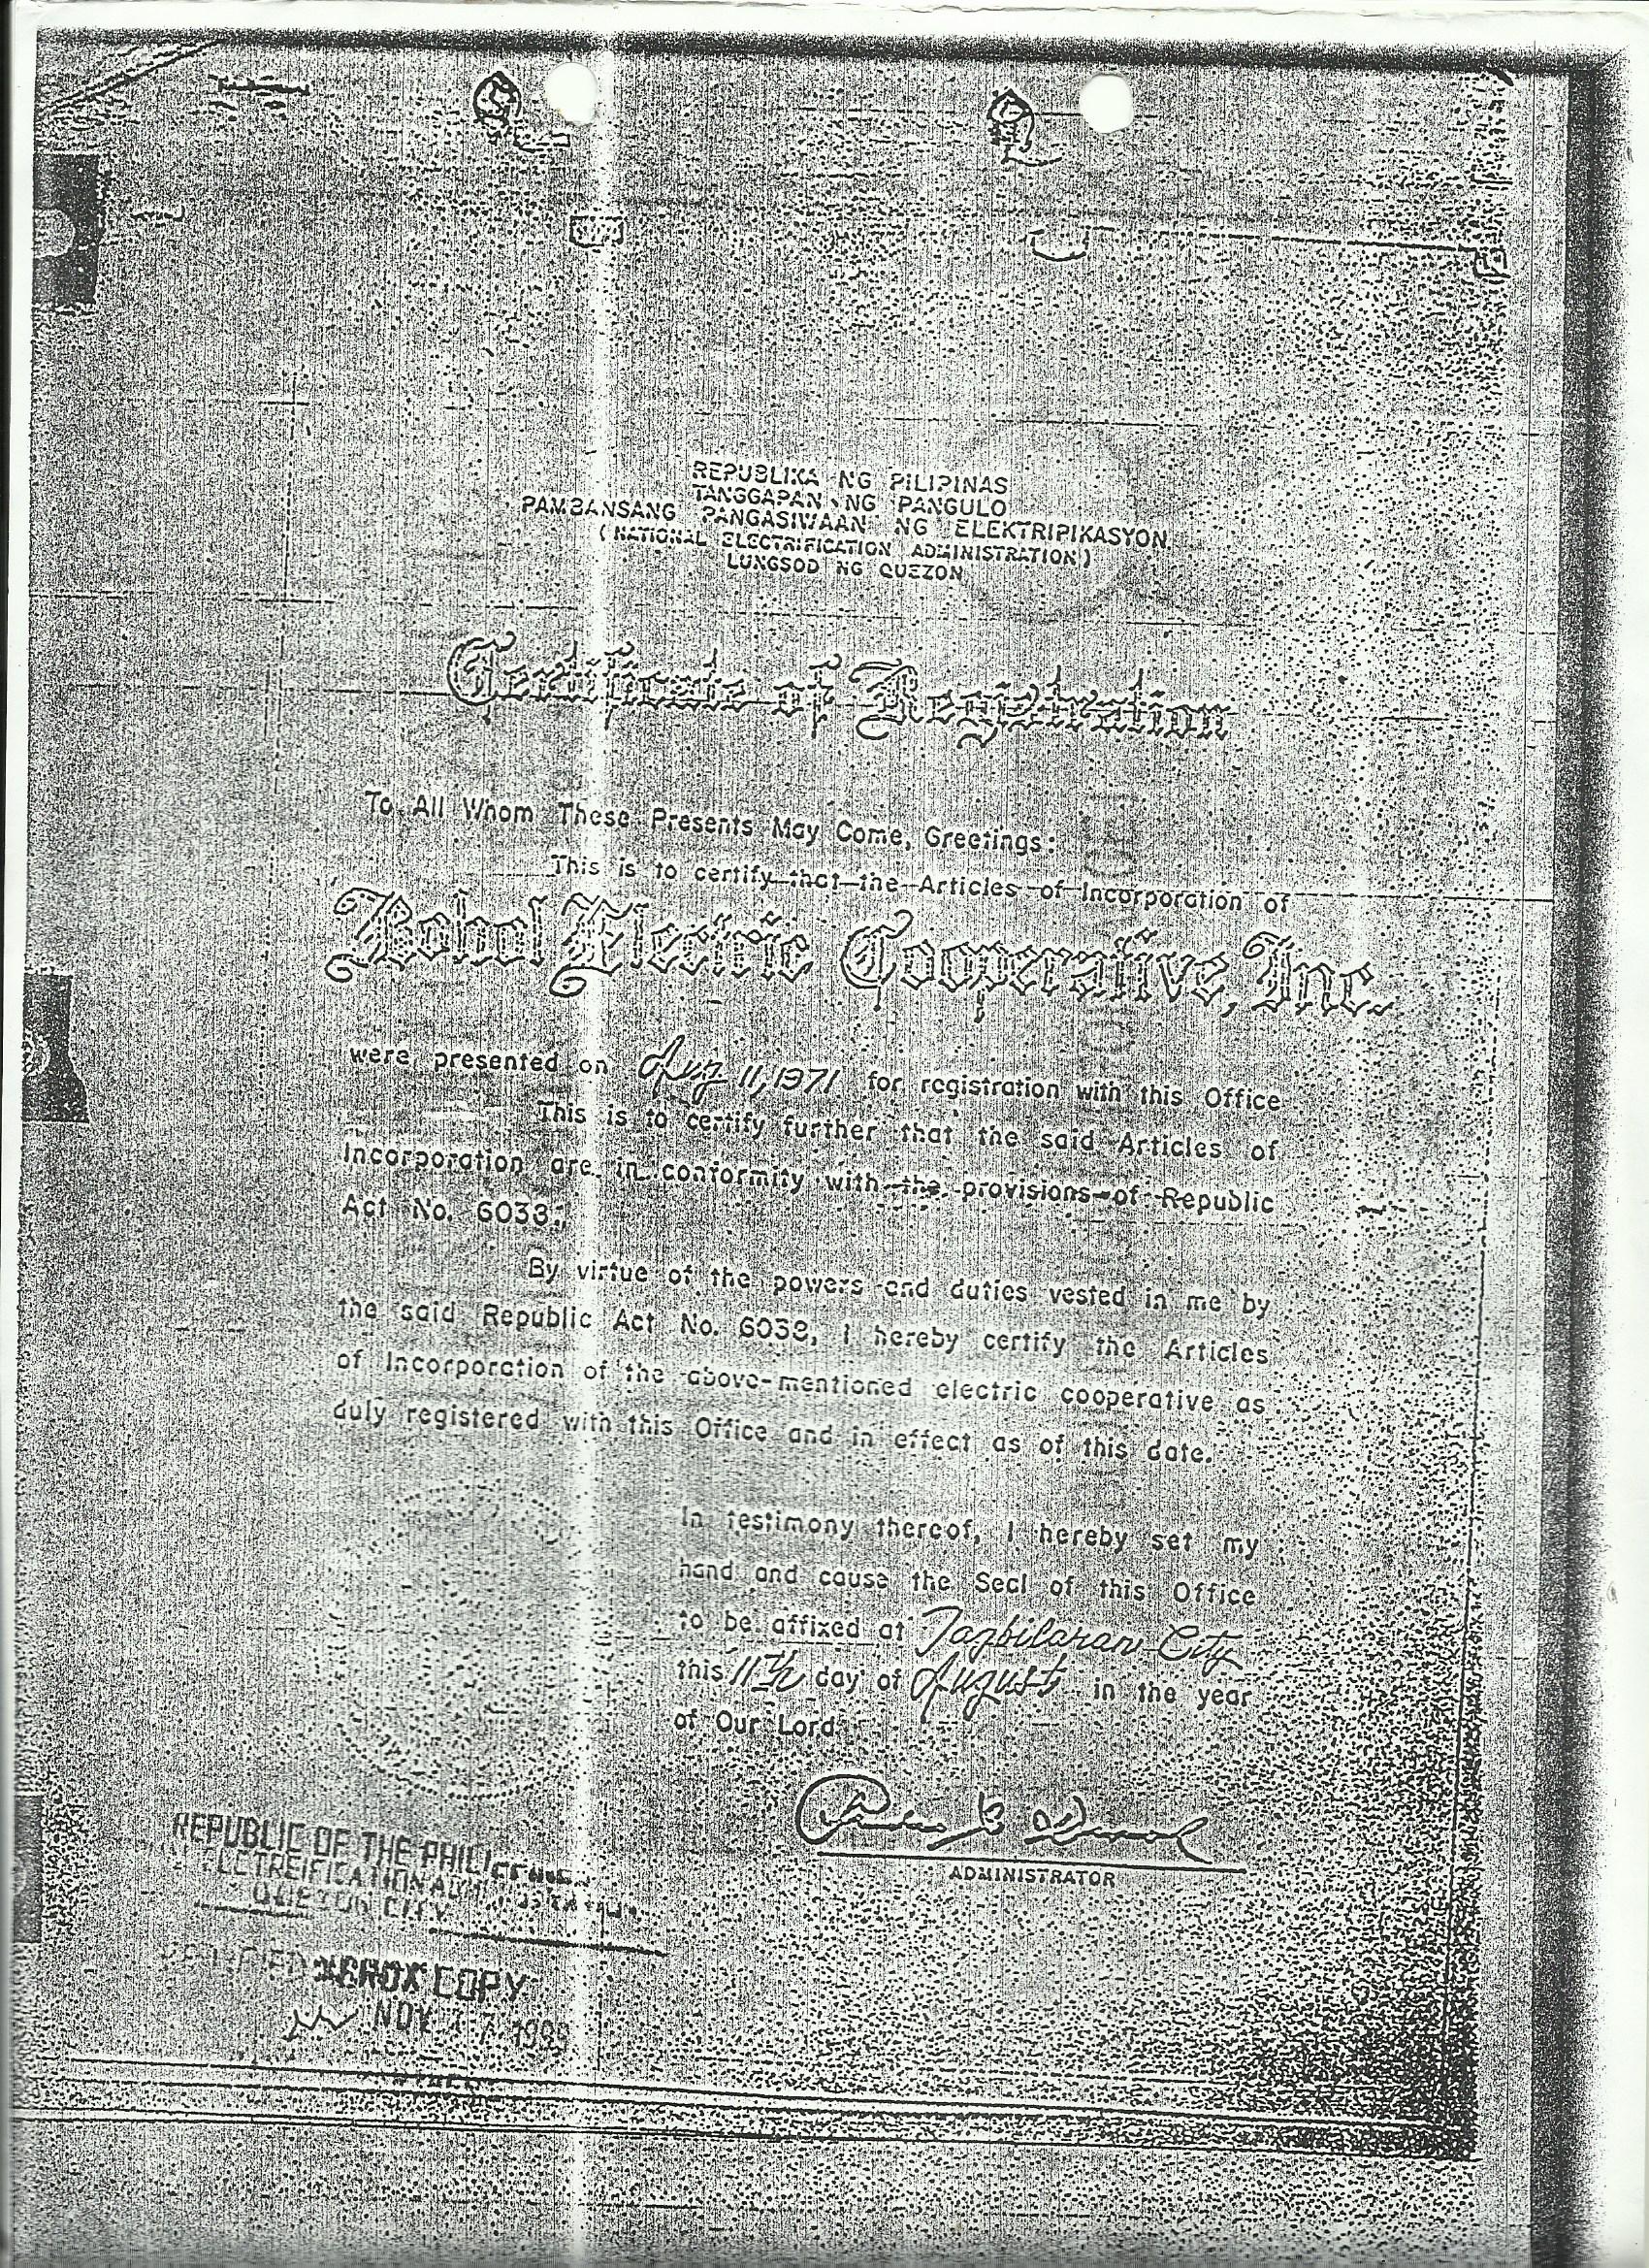 REPUBLIKA NG PILIPINAS
TANGGAPAN NG PANGULO
PAMBANSANG PANGASIWAAN NG ELEKTRIPIKASYON
(NATIONAL ELECTRIFICATION ADMINISTRATION)
LUNGSOD NG QUEZON
Certificate of Registration
To All Whom These Presents May Come, Greetings:
This is to certify that the Articles of Incorporation of
Bohol Electric Cooperative, Inc.
were presented on Aug 11, 1971 for registration with this Office
This is to certify further that the said Articles of
Incorporation are in conformity with the provisions of Republic
Act No. 6038.
By virtue of the powers and duties vested in me by
the said Republic Act No. 6038, I hereby certify the Articles
of Incorporation of the above-mentioned electric cooperative as
duly registered with this Office and in effect as of this date.
In testimony thereof, I hereby set my
hand and cause the Seal of this Office
to be affixed at Tagbilaran City
this 11th day of August in the year
of Our Lord
ADMINISTRATOR
REPUBLIC OF THE PHILIPPINES
QUEZON CITY
XEROX COPY
NOV